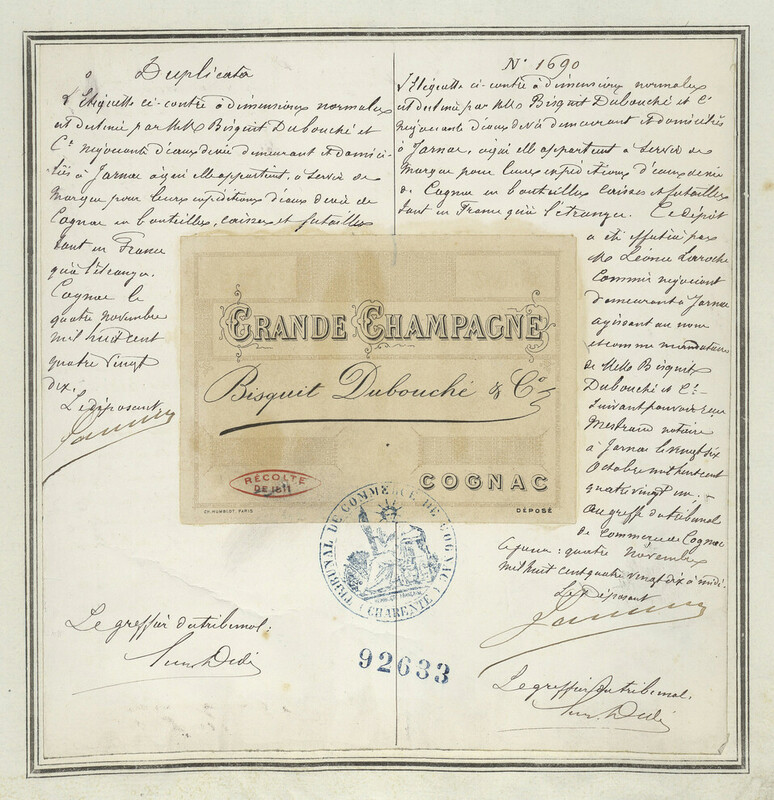 Duplicata
L'Etiquette ci-contre à dimensions normales
est destinée par MMrs Bisquit Dubouché et
Cie négociants d'eaux de vie demeurant et domici-
liés à Jarnac à qui elle appartient, à servir de
Marque pour leurs expéditions d'eaux de vie de
Cognac en bouteilles, caisses et futailles
tant en France
qu'à l'étranger.
Cognac le
quatre novembre
mil huit cent
quatre vingt
dix.
Le déposant
Le greffier du tribunal:
N° 1690
L'Etiquette ci-contre à dimensions normales
est destinée par MMrs Bisquit Dubouché et Cie
négociants d'eaux de vie demeurant et domiciliés
à Jarnac, à qui elle appartient à servir de
Marque pour leurs expéditions d'eaux de vie
de Cognac en bouteilles caisses et futailles
tant en France qu'à l'étranger. Ce dépôt
a été effectué par
Mr Léonce Laroche
Commis négociant
demeurant à Jarnac
agissant au nom
et comme mandataire
de MMrs Bisquit
Dubouché et Cie
suivant pouvoir reçu
Mestraud notaire
à Jarnac le vingt six
Octobre mil huit cent
quatre vingt un.
Au greffe du tribunal
de Commerce de Cognac
ce jour: quatre novembre
mil huit cent quatre vingt dix à midi.
Le Déposant
Le greffier du tribunal.
GRANDE CHAMPAGNE
Bisquit Dubouché & Co
RÉCOLTE
DE 1811
COGNAC
CH. HUMBLOT, PARIS
DÉPOSÉ
TRIBUNAL DE COMMERCE DE COGNAC
(CHARENTE)
92633